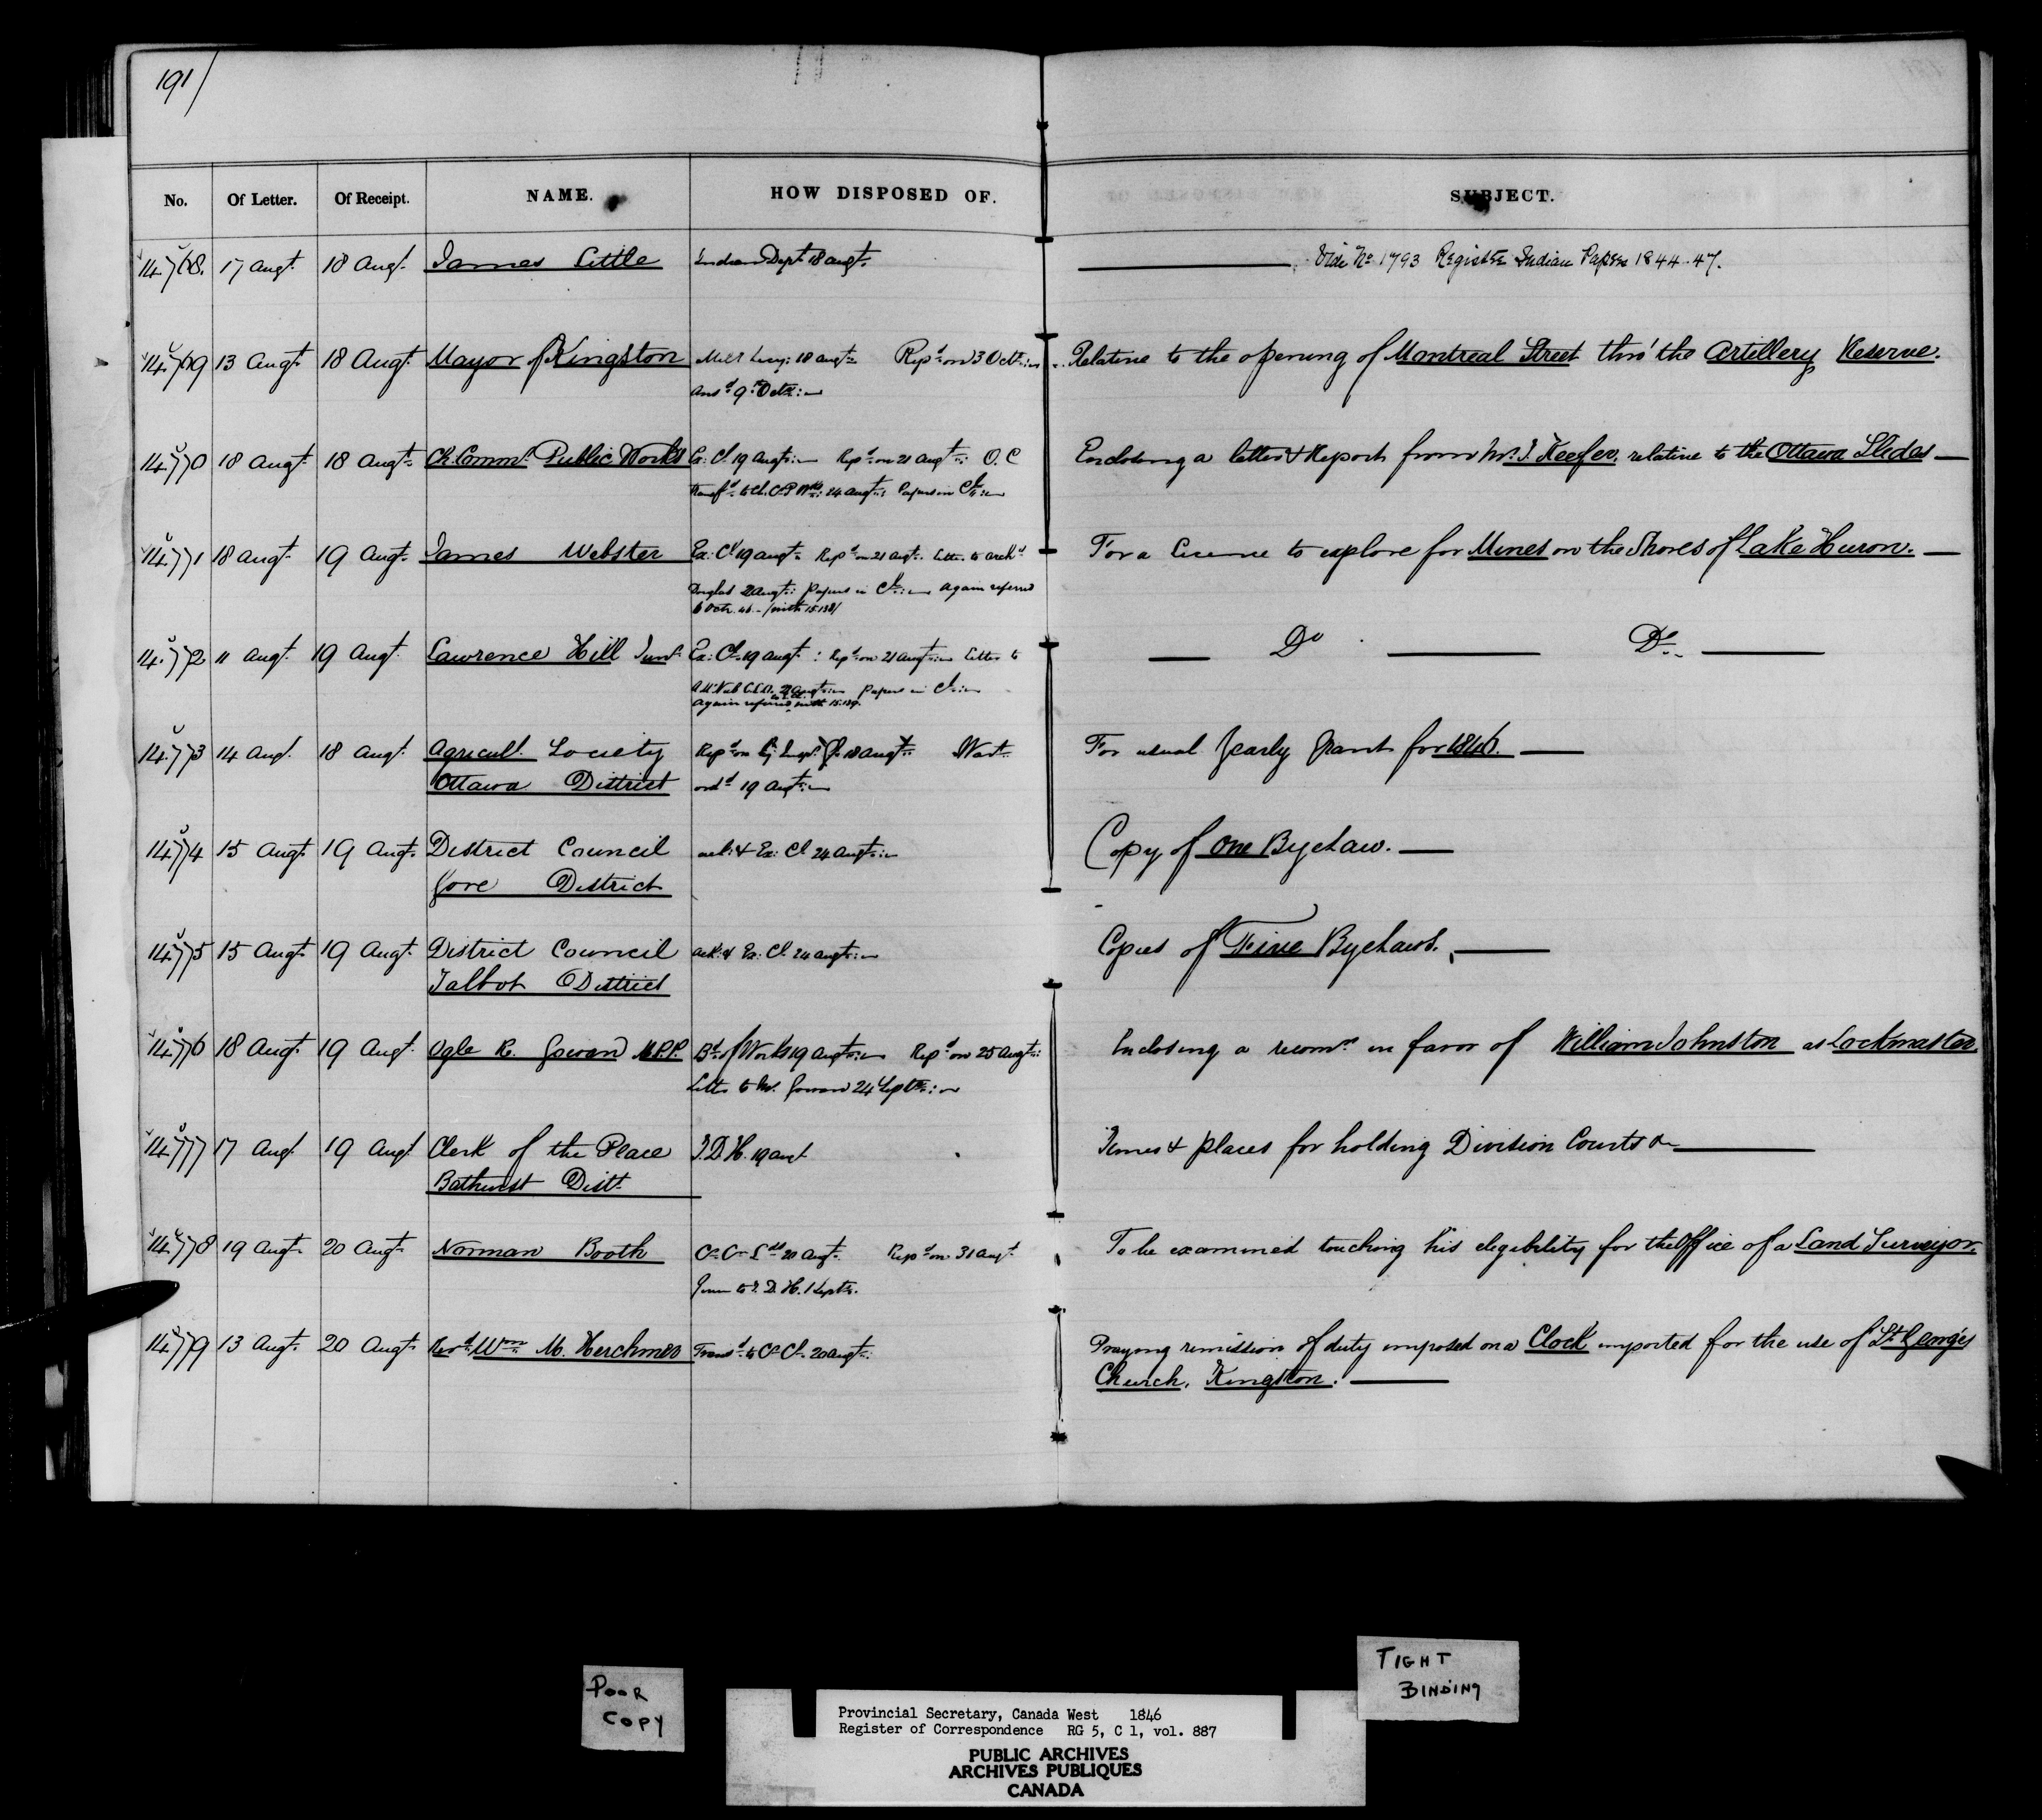 191/
No. Of Letter. Of Receipt. NAME. HOW DISPOSED OF. SUBJECT.
14.768. 17 Augt. 18 Augt. James Little Indian Dept 18 augt. Vide No 1793 Register Indian Papers 1844-47.
14.769 13 Augt. 18 Augt. Mayor of Kingston 18 augt. Repd on 3 Octr. Relative to the opening of Montreal Street thro' the Artillery Reserve.
ansd 9 Octr.
14.770 18 Augt. 18 Augt. Ch. Commr. Public Works Ex: Cl. 19 Augt. Repd on 21 augt. O.C Enclosing a letter & Report from Mr. Keefer, relative to the Ottawa Slides
Transfd to Ch. C. P. Wks: 24 augt: Papers in
14.771 18 augt. 19 Augt. James Webster Ex: Cl 19 augt. Repd on 21 augt. Letter to For a License to explore for Mines on the Shores of Lake Huron.
Papers in again referred
6 Octr. 46 - /with 15.138/
14.772 11 Augt. 19 Augt. Lawrence Hill Junr. Ex: Cl. 19 augt: Repd on 21 augt. Letter to Do Do
papers in
again referred with 15.139.
14.773 14 Augt. 18 Augt. Agricult. Society Repd on by Inspr. Gl. 18 augt. Wart. For usual yearly grant for 1846.
Ottawa District ordd 19 Augt.
14.774 15 Augt. 19 Augt. District Council ack: & Ex: Cl 24 augt. Copy of One Bye Law.
Gore District
14.775 15 Augt. 19 Augt. District Council ack: & Ex: Cl. 24 augt. Copies of Five Bye Laws.
Talbot District
14.776 18 Augt. 19 Augt. Ogle R. Gowan M.P.P. Bd. of Works 19 augt. Repd on 25 augt: Enclosing a recomn. in favor of William Johnston as Lockmaster
Letter to Mr. Gowan 24 Septr.
14.777 17 Augt. 19 Augt Clerk of the Peace T.D.H. 19 augt Times & places for holding Division Courts &c
Bathurst Distt.
14.778 19 Augt. 20 Augt. Norman Booth C. C. Lds 20 augt. Repd on 31 augt. To be examined touching his eligibility for the Office of a Land Surveyor.
to T. D. H. 1 Septr.
14.779 13 Augt. 20 Augt. Revd. Wm. M. Herchmer Transd. to C. Cl. 20 augt. Praying remission of duty imposed on a Clock imported for the use of St. George's
Church, Kingston.
POOR
COPY
TIGHT
BINDING
Provincial Secretary, Canada West 1846
Register of Correspondence RG 5, C 1, vol. 887
PUBLIC ARCHIVES
ARCHIVES PUBLIQUES
CANADA